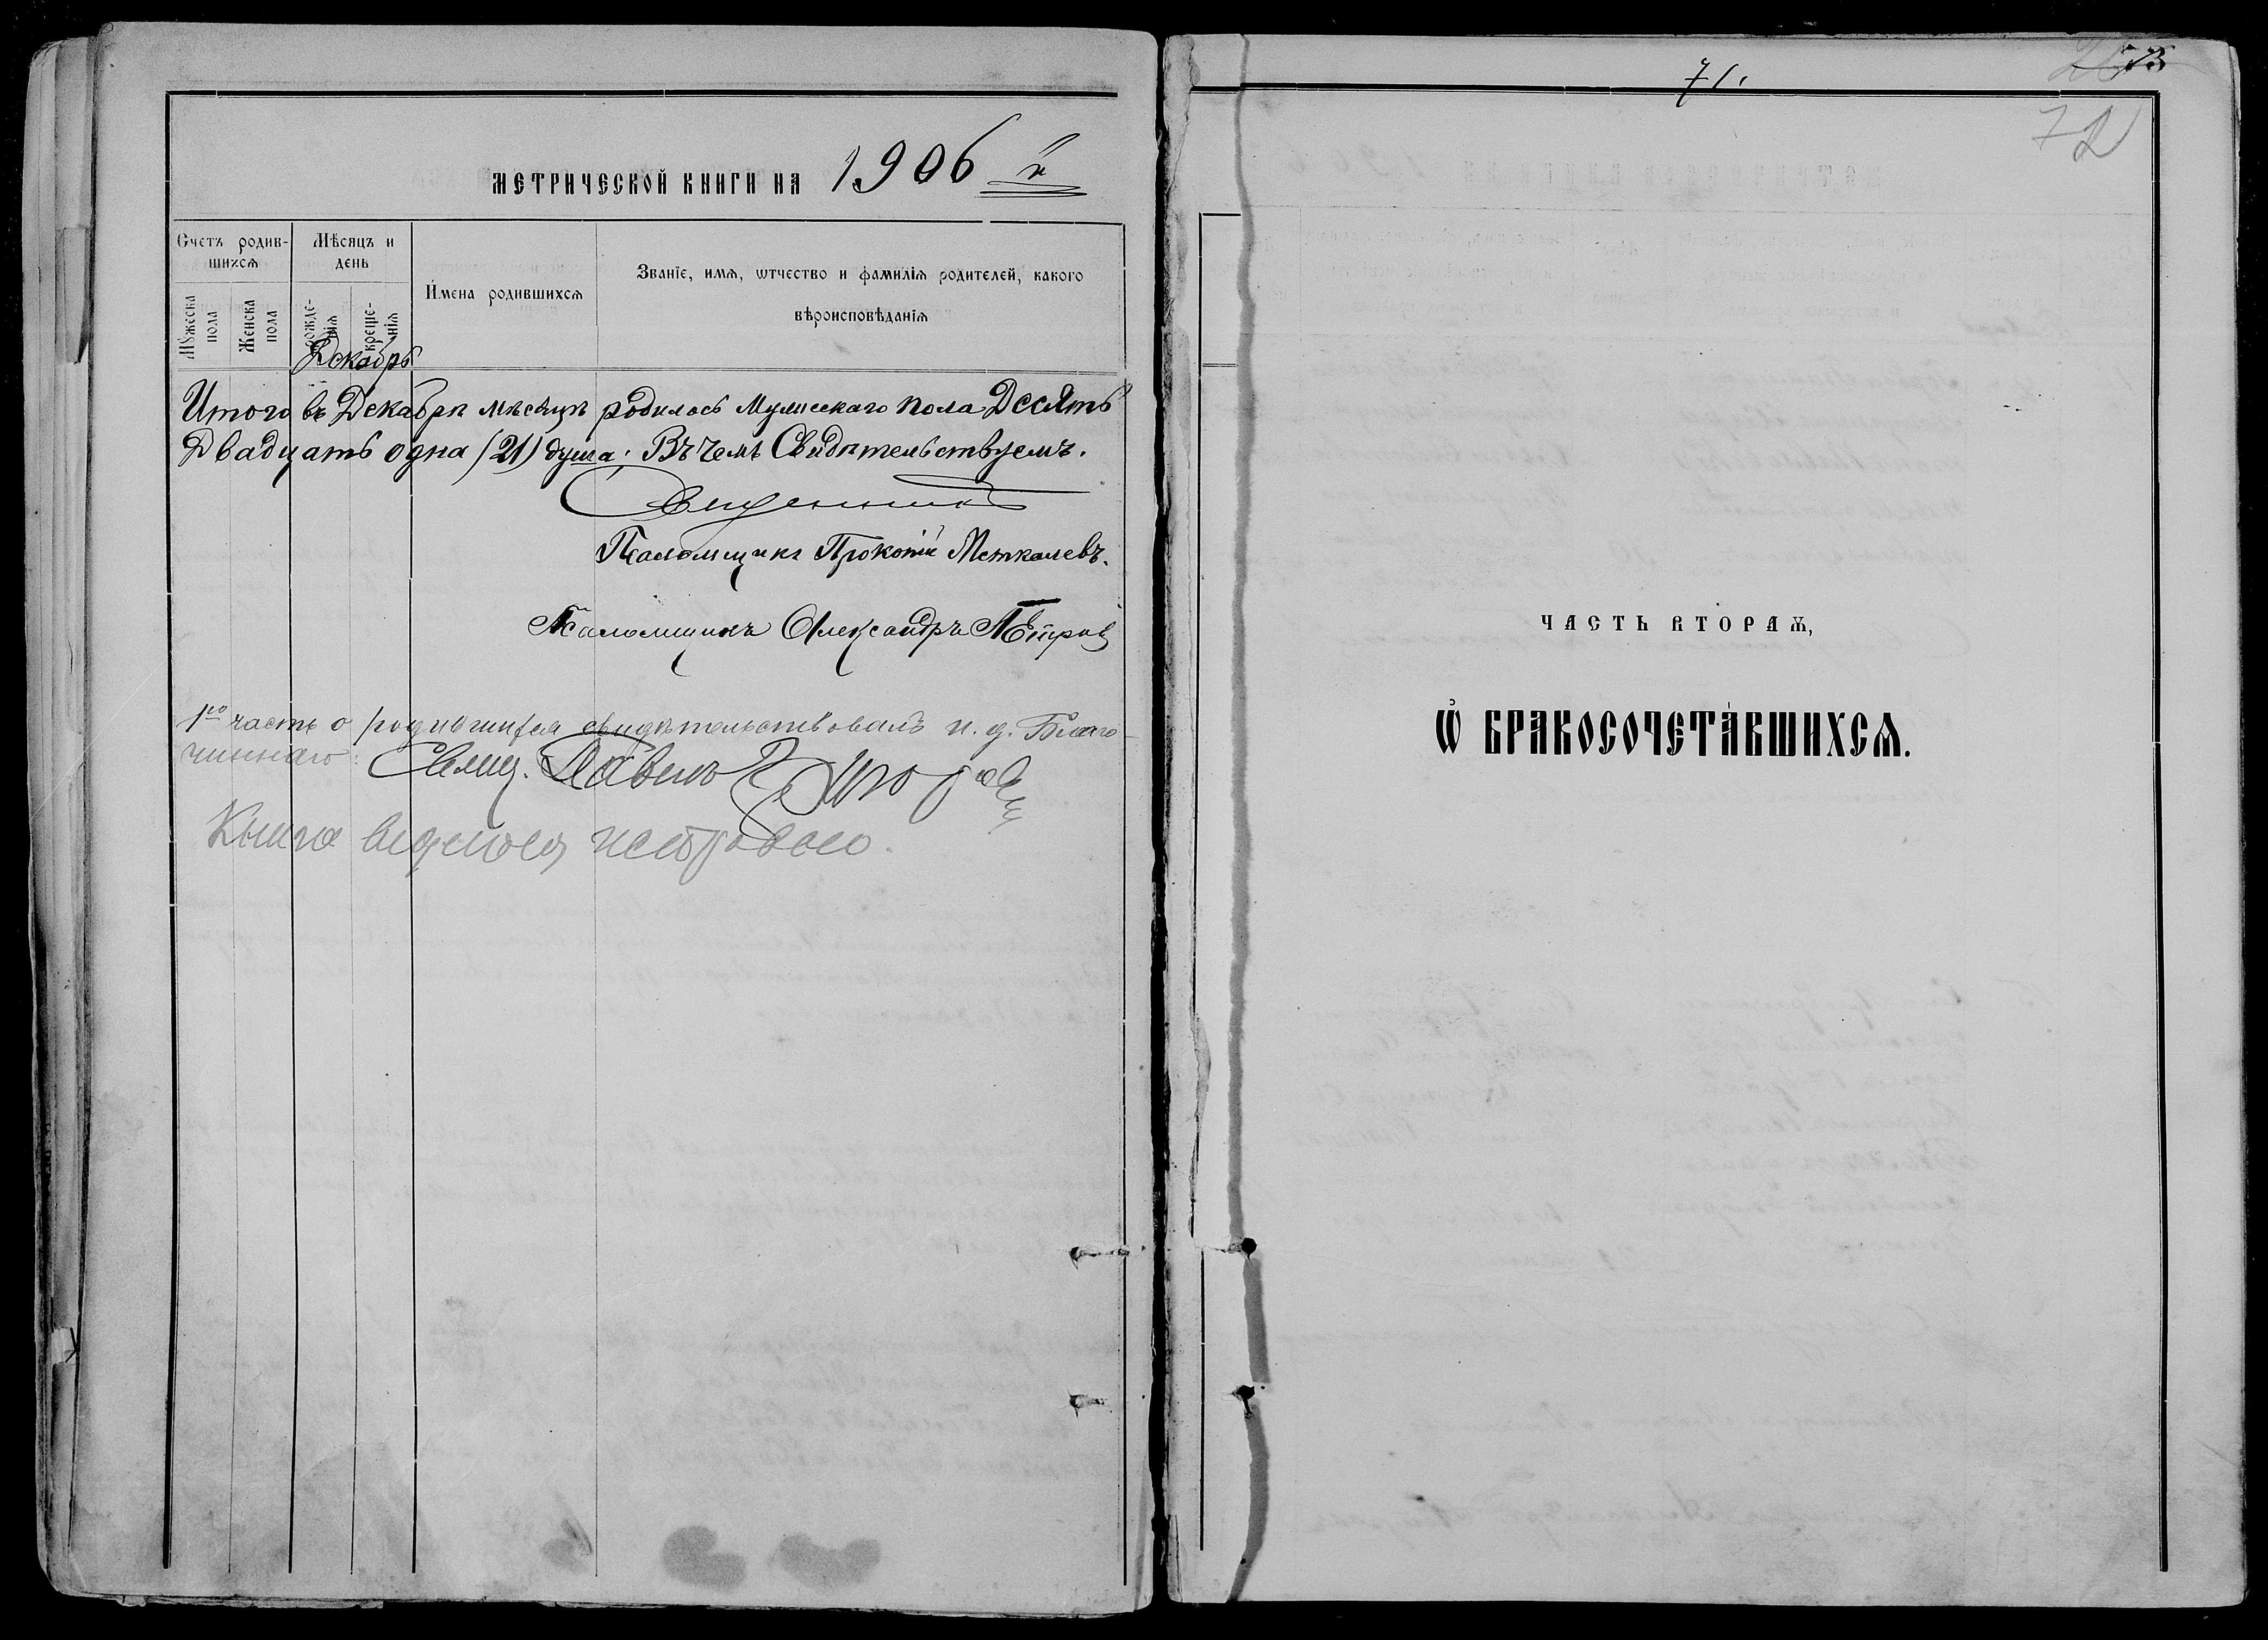 МЕТРИЧЕСКОЙ КНИГИ НА 1906 й
Счетъ родив-
шихсѧ
Мѣсяцъ и
день
Имена родившихсѧ
Званіе, имѧ, ѡтчество и фамиліѧ родителей, какого
вѣроисповѣданіѧ
Мꙋжеска
пола
Женска
пола
рожде-
нія
креще-
нія
Декабрь
Итого въ Декабрѣ мѣсяцѣ родилось Мужескаго пола Десять
Двадцать одна (21) душа. Въ чемъ Свидѣтельствуемъ.
Священникъ
Псаломщикъ Прокопій Меткалевъ.
Псаломщикъ Александръ Петровъ
1ю часть о родившихся свидѣтельствовалъ и. д. Благо-
чиннаго: Свящ. Павелъ
Книга ведется исправно.
71.
72
ЧАСТЬ ВТОРАѦ,
Ѡ БРАКОСОЧЕТА́ВШИХСѦ.